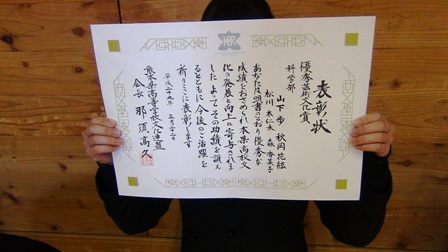 表彰状
優秀芸術文化賞
科学部
山下 歩 秋岡 花絵
松川 木仁木 森 香菜子
あなたは別書のとおり優秀な
成績をおさめられ本県高校文
化の発展と向上に寄与されま
した よってその功績を讃え
るとともに今後のご活躍を
祈りここに表彰します
平成二十九年 五月二十二日
熊本県高等学校文化連盟
会長 那須高久